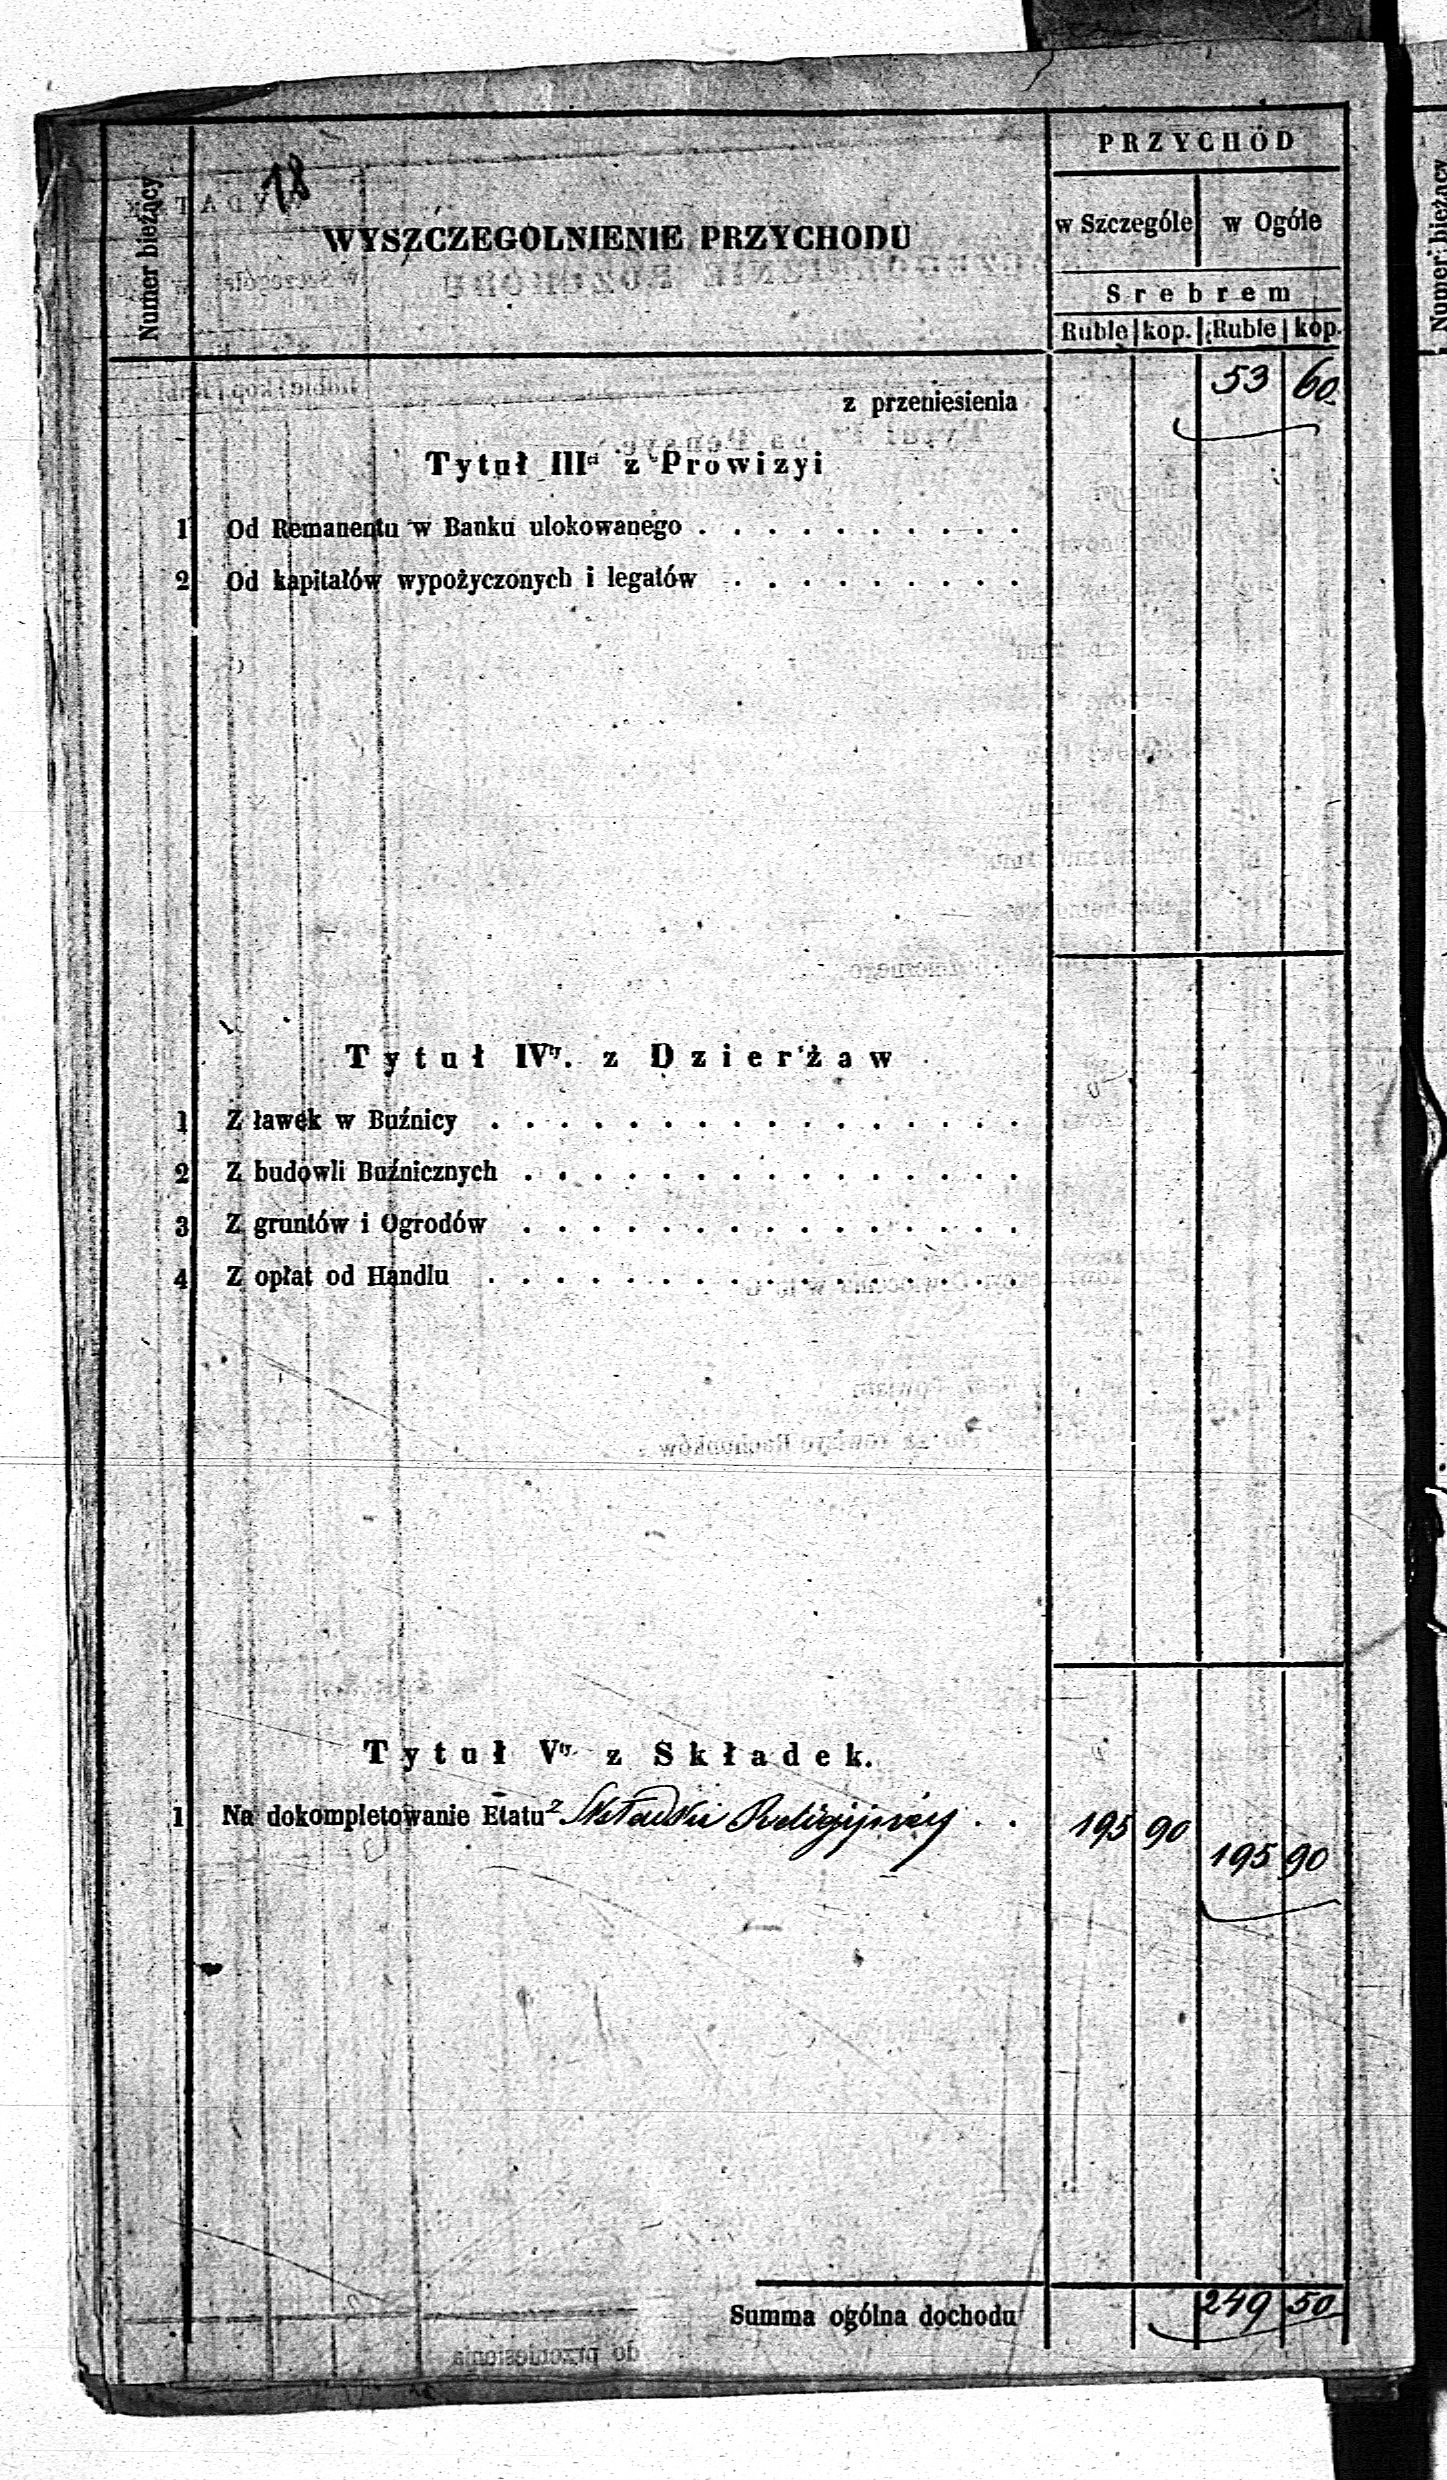 18
Numer bieżący
WYSZCZEGÓLNIENIE PRZYCHODU
PRZYCHÓD
w Szczególe w Ogóle
Srebrem
Ruble kop. Ruble kop.
z przeniesienia 53 60
Tytuł IIIci z Prowizyi
1 Od Remanentu w Banku ulokowanego . . . . . . . . . .
2 Od kapitałów wypożyczonych i legatów . . . . . . . . .
Tytuł IVty. z Dzierżaw
1 Z ławek w Buźnicy . . . . . . . . . . . . . . . .
2 Z budowli Buźnicznych . . . . . . . . . . . . . . .
3 Z gruntów i Ogrodów . . . . . . . . . . . . . . .
4 Z opłat od Handlu . . . . . . . . . . . . . . . .
Tytuł Vty. z Składek.
1 Na dokompletowanie Etatu z Składki Religijnéy . . 195 90
195 90
Summa ogólna dochodu 249 50